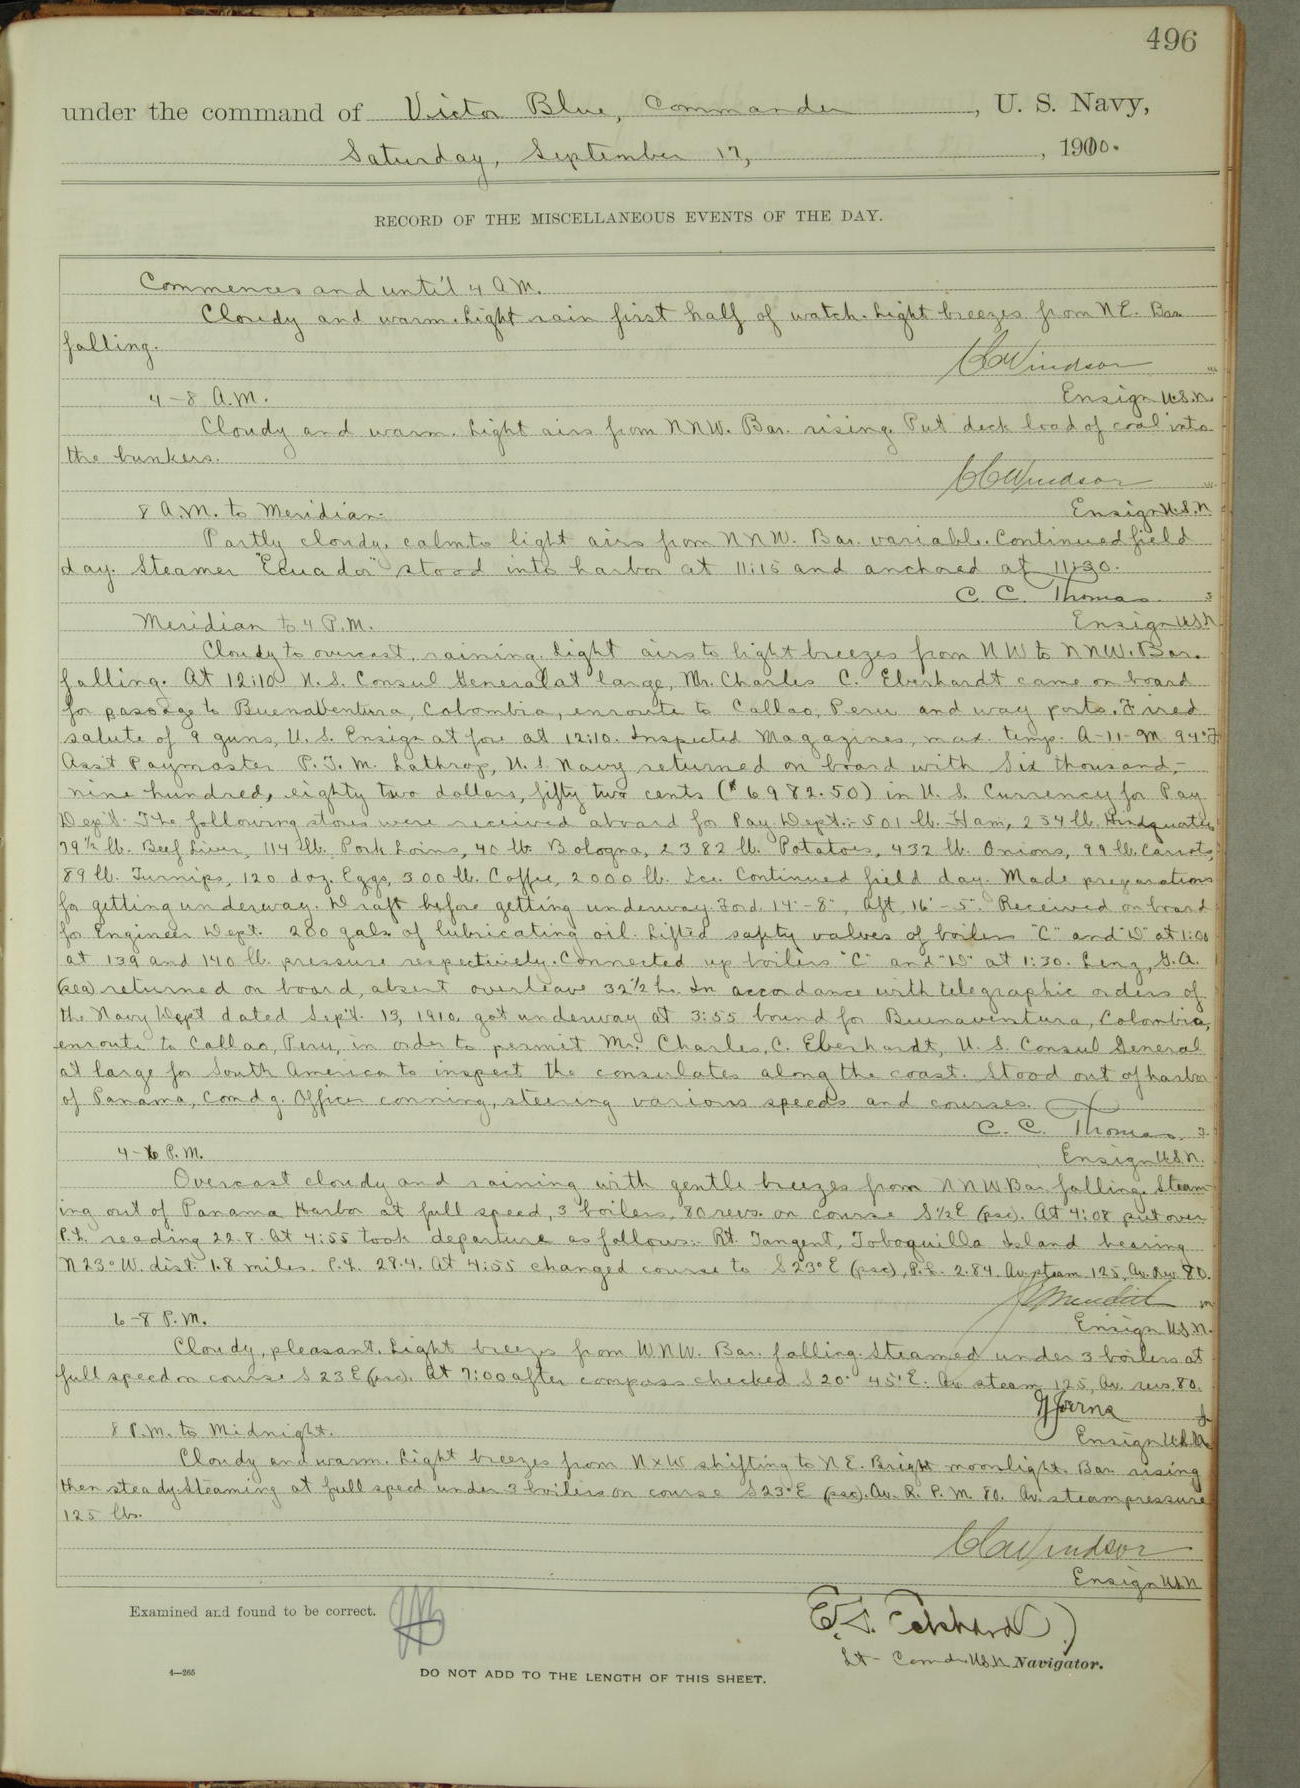 496
under the command of Victor Blue, Commander, U. S. Navy,
Saturday, September 17, 1910.
RECORD OF THE MISCELLANEOUS EVENTS OF THE DAY.
Commences and until 4 A.M.
Cloudy and warm. Light rain first half of watch. Light breezes from N E. Bar.
falling.
Windsor
Ensign U.S.N.
4-8 A.M.
Cloudy and warm. Light airs from NNW. Bar. rising. Put deck load of coal into
the bunkers.
Windsor
Ensign U.S.N.
8 A.M. to Meridian.
Partly cloudy, calm to light airs from NNW. Bar. variable. Continued field
day. Steamer "Ecuador" stood into harbor at 11:15 and anchored at 11:30.
C. C. Thomas
Ensign U.S.N.
Meridian to 4 P.M.
Cloudy to overcast, raining. Light airs to light breezes from NW to NNW. Bar.
falling. At 12:10 U. S. Consul General at large, Mr. Charles C. Eberhardt came on board
for passage to Buenaventura, Colombia, enroute to Callao, Peru and way ports. Fired
salute of 9 guns, U. S. Ensign at fore at 12:10. Inspected Magazines, max. temp. A-11-M 94°F.
Ass't Paymaster P. T. M. Lathrop, U. S. Navy returned on board with Six thousand,-
nine hundred, eighty two dollars, fifty two cents ($6982.50) in U. S. Currency for Pay
Dep't. The following stores were received aboard for Pay Dept:- 501 lb. Ham, 254 lb. Hindquarters
79½ lb. Beef Liver, 114 lb. Pork Loins, 40 lb. Bologna, 2382 lb. Potatoes, 432 lb. Onions, 99 lb. Carrots,
89 lb. Turnips, 120 doz. Eggs, 300 lb. Coffee, 2000 lb. Ice. Continued field day. Made preparations
for getting underway. Draft before getting underway: Ford. 14'-8", Aft. 16'-5". Received on board
for Engineer Dept. 280 gals. of lubricating oil. Lifted safety valves of boilers "C" and "D" at 1:00
at 139 and 140 lb. pressure respectively. Connected up boilers "C" and "D" at 1:30. Lenz, G. A.
(sea) returned on board, absent overleave 32½ hr. In accordance with telegraphic orders of
the Navy Dept dated Sept. 13, 1910 got underway at 3:55 bound for Buenaventura, Colombia,
enroute to Callao, Peru, in order to permit Mr. Charles, C. Eberhardt, U. S. Consul General
at large for South America to inspect the consulates along the coast. Stood out of harbor
of Panama, Comdg. Officer conning, steering various speeds and courses.
C. C. Thomas
Ensign U.S.N.
4-6 P.M.
Overcast cloudy and raining with gentle breezes from NNW Bar. falling. Steam-
ing out of Panama Harbor at full speed, 3 boilers, 80 revs. on course S½E (psc). At 4:08 put over
P.L. reading 22.8. At 4:55 took departure as follows:- Rt. Tangent, Taboguilla Island bearing
N 23° W. dist. 1.8 miles. P.L. 28.4. At 4:55 changed course to S 23° E (psc), P.L. 2.84. Av. steam 125, Av. Rev. 80.
Ensign U.S.N.
6-8 P.M.
Cloudy, pleasant. Light breezes from WNW. Bar. falling. Steamed under 3 boilers at
full speed on course S 23 E (psc). At 7:00 after compass checked S 20° 45' E. Av. steam 125, Av. revs. 80.
Ensign U.S.N.
8 P.M. to Midnight.
Cloudy and warm. Light breezes from NxW shifting to N E. Bright moonlight. Bar. rising
then steady. Steaming at full speed under 3 boilers on course S 23° E (psc). Av. R. P. M. 80. Av. steam pressure
125 lbs.
Windsor
Ensign U.S.N
Examined and found to be correct.
Lt- Comdr. U.S.N. Navigator.
4—265
DO NOT ADD TO THE LENGTH OF THIS SHEET.